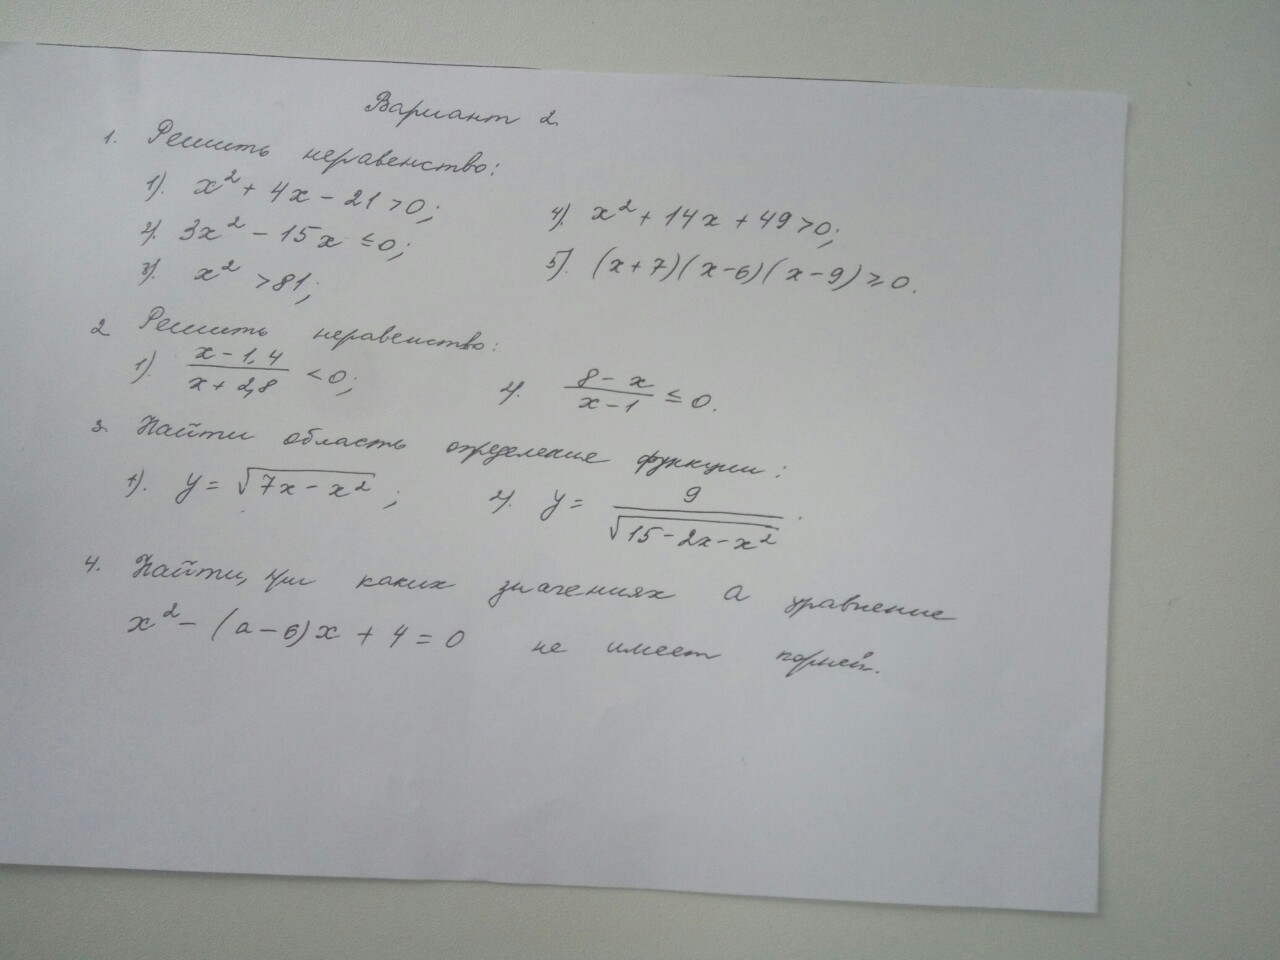 Вариант 2.
1. Решить неравенство:
1). x² + 4x - 21 > 0;
2). 3x² - 15x ≤ 0;
3). x² > 81;
4). x² + 14x + 49 > 0;
5). (x+7)(x-6)(x-9) ≥ 0.
2 Решить неравенство:
1). (x - 1,4)/(x + 2,8) < 0;
2). (8 - x)/(x - 1) ≤ 0.
3. Найти область определение функции:
1). y = √(7x - x²);
2). y = 9/√(15 - 2x - x²).
4. Найти, при каких значениях а уравнение
x² - (a - 6)x + 4 = 0 не имеет корней.